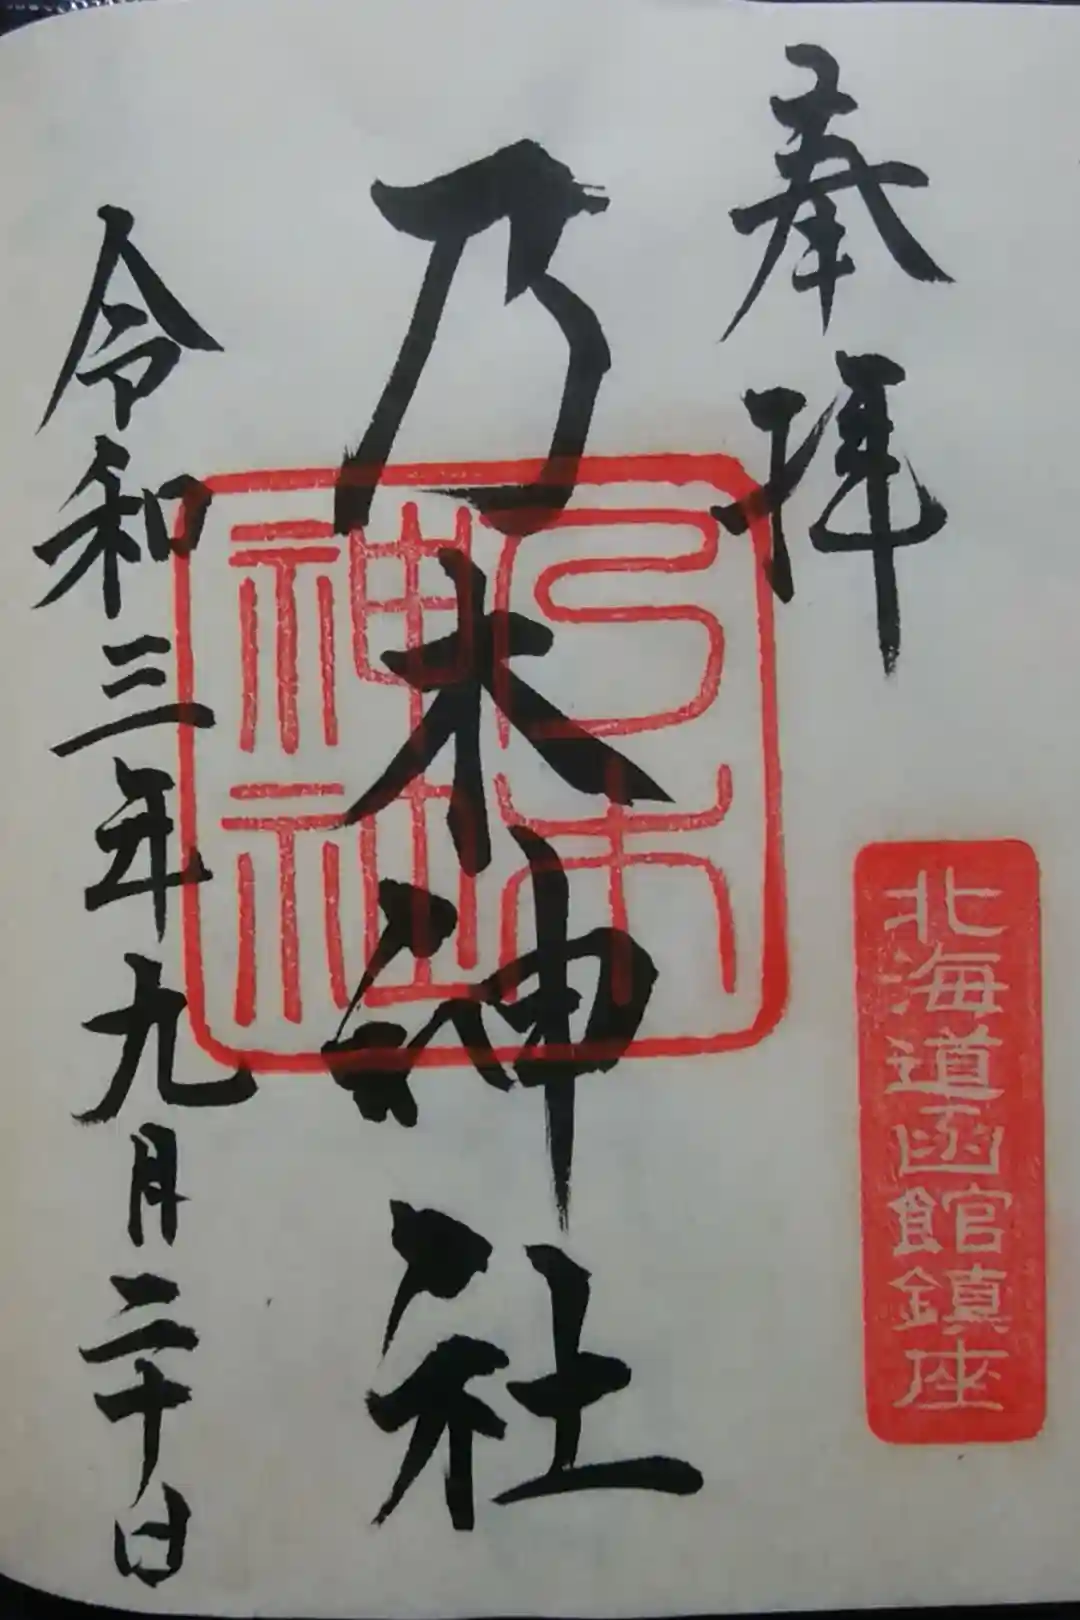 奉拝
北海道函館鎮座
乃木神社
乃木
神社
令和三年九月二十日